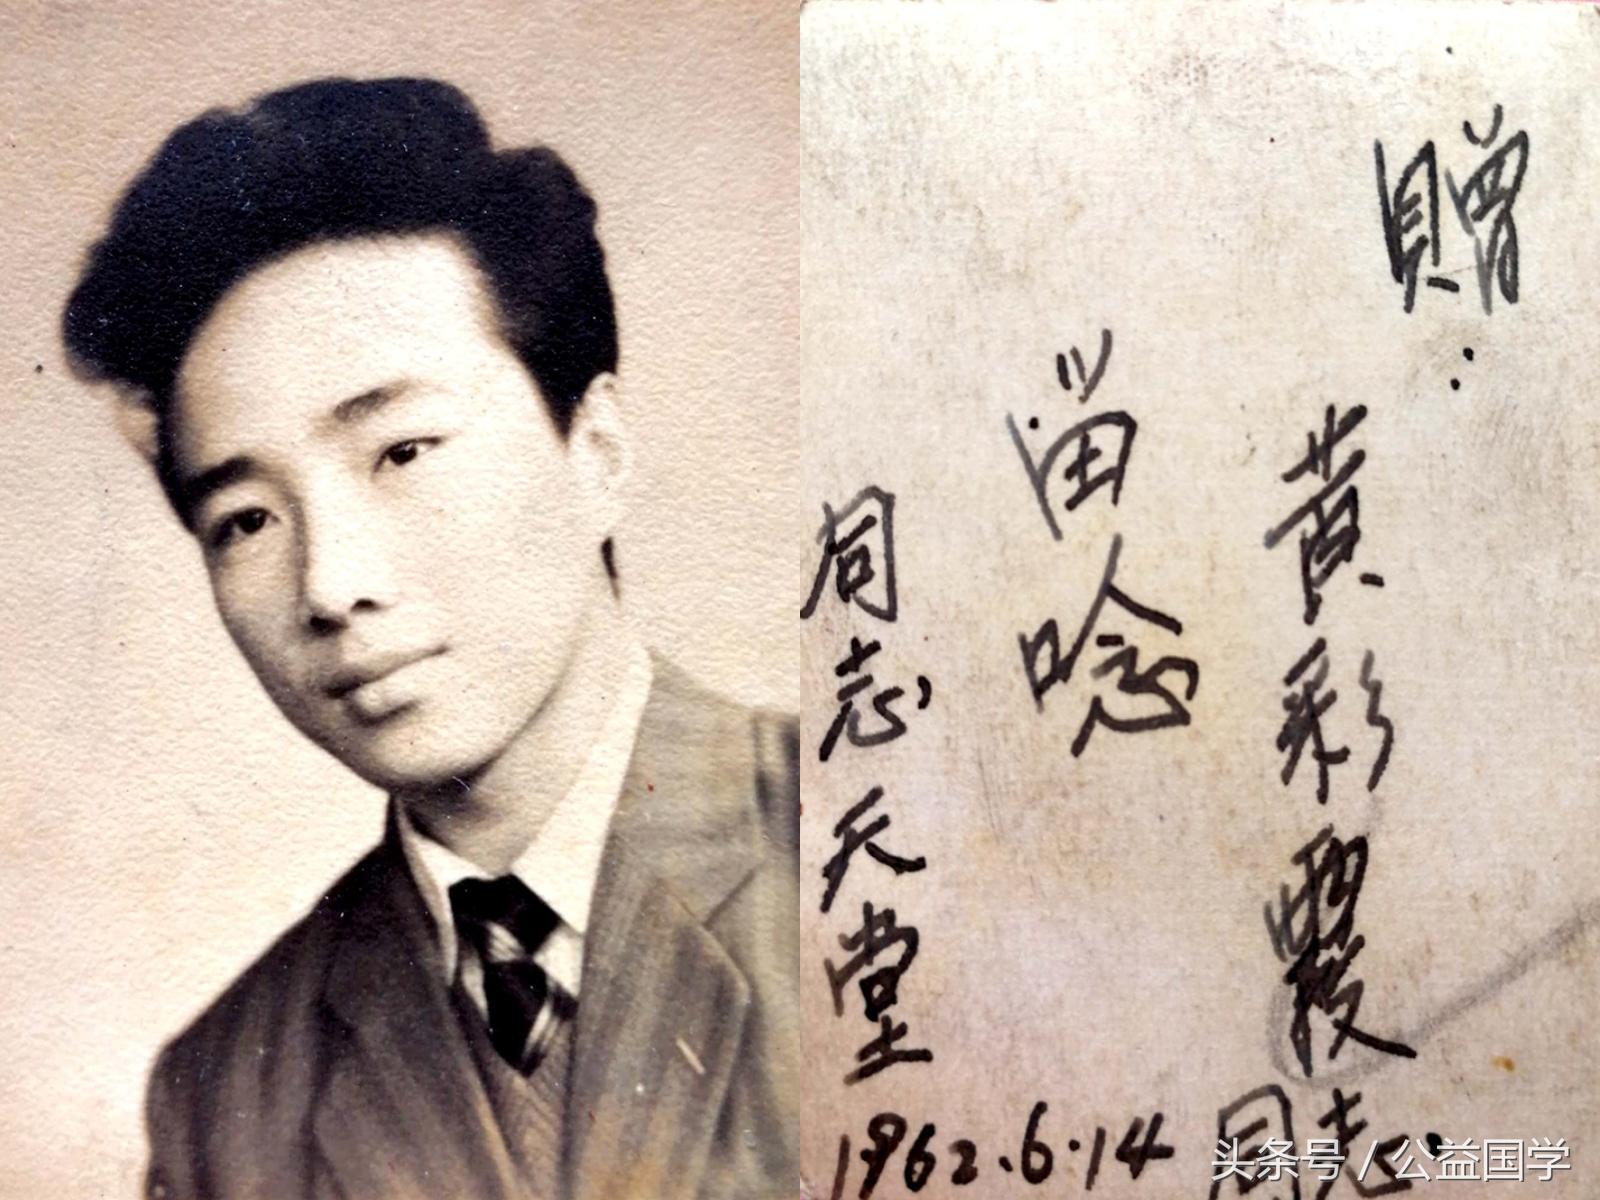 贈:
黃彩霞同志
留唸
同志天堂
1962.6.14
头条号 / 公益国学